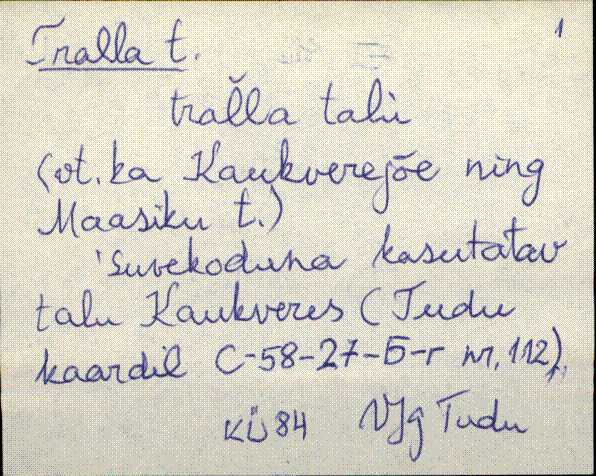 1
Tralla t.
tral̆la talu
(vt. ka Kaukverejõe ning
Maasiku t.)
'Suvekoduna kasutatav
talu Kaukveres (Tudu
kaardil C-58-27-Б-г nr. 112)'.
KÜ 84 VJg Tudu